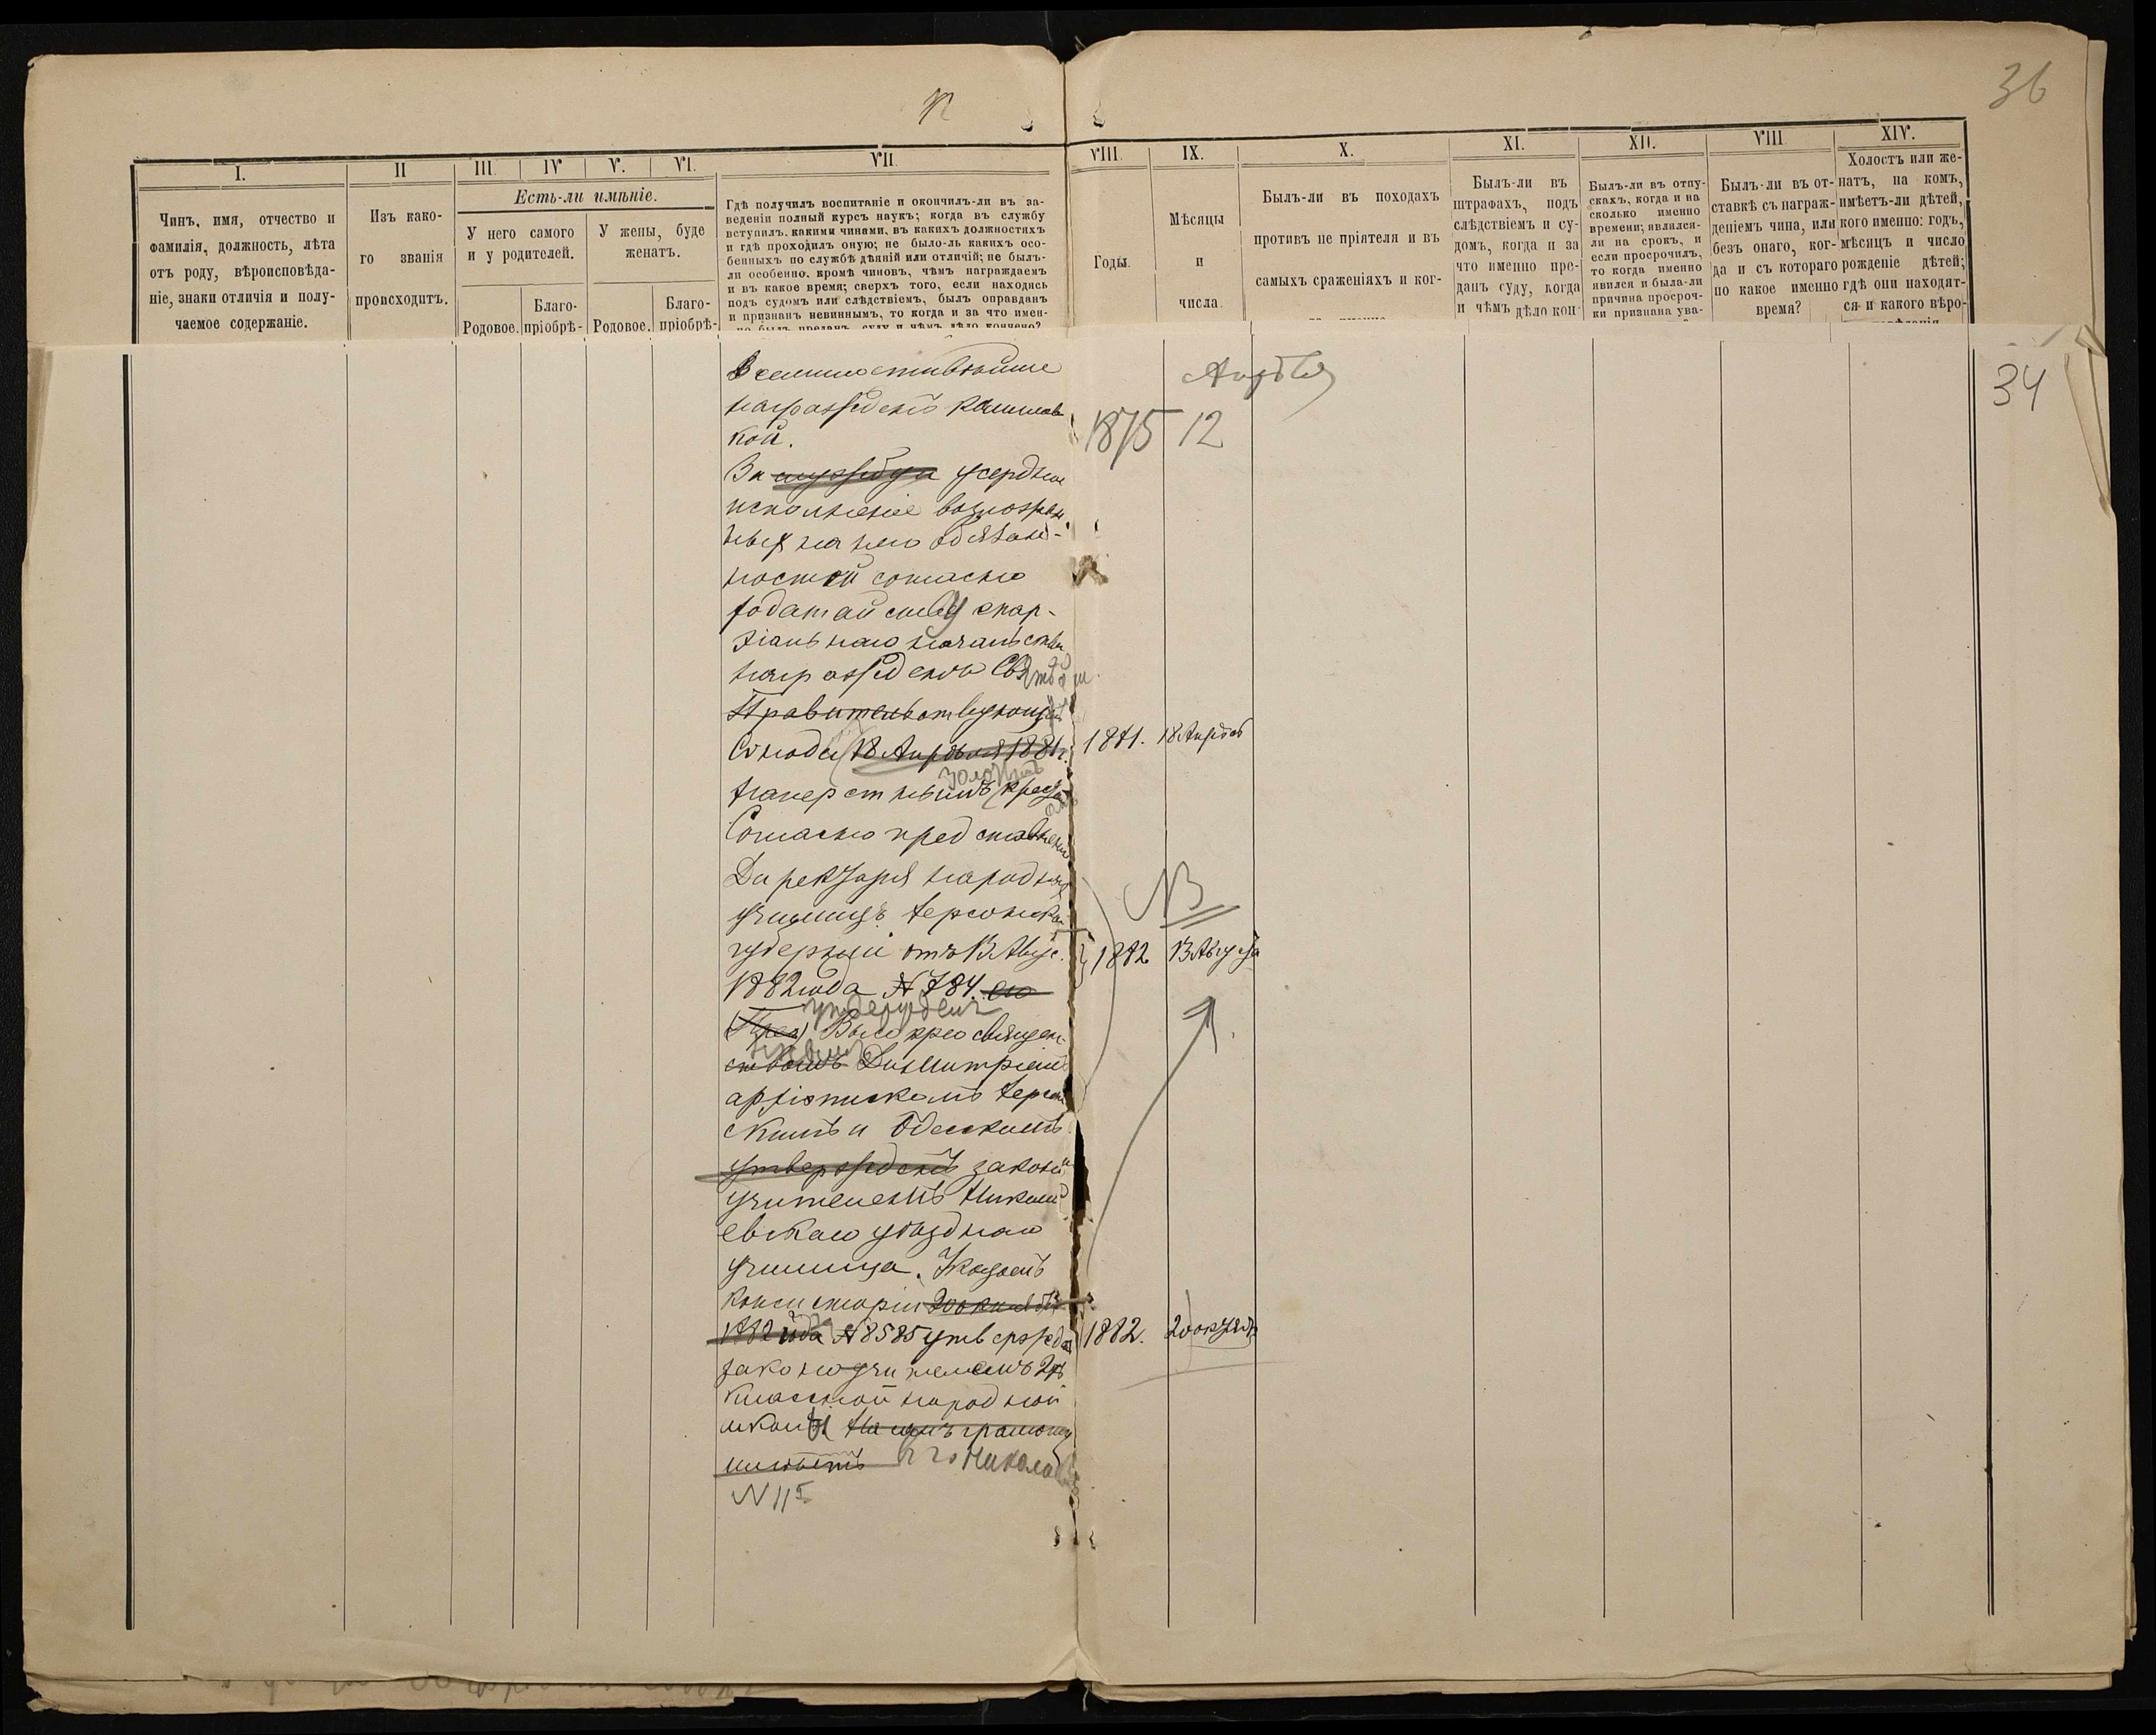 36
34
I.
II
III.
IV
V.
VI.
VII.
VIII.
IX.
X.
XI.
XII.
VIII
XIV.
Чинъ, имя, отчество и
фамилія, должность, лѣта
отъ роду, вѣроисповѣда-
ніе, знаки отличія и полу-
чаемое содержаніе.
Изъ како-
го званія
происходитъ.
Есть-ли имѣніе.
У него самого
и у родителей.
У жены, буде
женатъ.
Родовое.
Благо-
пріобрѣ-
Родовое.
Благо-
пріобрѣ-
Гдѣ получилъ воспитаніе и окончилъ-ли въ за-
веденіи полный курсъ наукъ; когда въ службу
вступилъ, какими чинами, въ какихъ должностяхъ
и гдѣ проходилъ оную; не было-ль какихъ осо-
бенныхъ по службѣ дѣяній или отличій; не былъ-
ли особенно, кромѣ чиновъ, чѣмъ награждаемъ
и въ какое время; сверхъ того, если находясь
подъ судомъ или слѣдствіемъ, былъ оправданъ
и признанъ невиннымъ, то когда и за что имен-
но былъ преданъ суду и чѣмъ дѣло кончено?
Годы.
Мѣсяцы
и
числа.
Былъ-ли въ походахъ
противъ не пріятеля и въ
самыхъ сраженіяхъ и ког-
Былъ-ли въ
штрафахъ, подъ
слѣдствіемъ и су-
домъ, когда и за
что именно пре-
данъ суду, когда
и чѣмъ дѣло кон-
Былъ-ли въ отпу-
скахъ, когда и на
сколько именно
времени; являлся-
ли на срокъ, и
если просрочилъ,
то когда именно
явился и была-ли
причина просроч-
ки признана ува-
Былъ-ли въ от-
ставкѣ съ награж-
деніемъ чина, или
безъ онаго, ког-
да и съ котораго
по какое именно
время?
Холостъ или же-
натъ, на комъ,
имѣетъ-ли дѣтей,
кого именно: годъ,
мѣсяцъ и число
рожденіе дѣтей;
гдѣ они находят-
ся и какого вѣро-
Всемилостивѣйше
награжденъ камилав
кой.
Апрѣля
1875 12
За усердное
исполненіе возложен
ныхъ на него обязан-
ностей согласно
ходатайству епар-
хіальнаго начальства
награжденъ Святѣйш.
Правительствующимъ
Сѵнода 18 Апрѣля 1881 г.
1881. 18 Апрѣля
золотымъ
наперстнымъ крестомъ
Согласно представленію
Директора народныхъ
училищъ Херсонской
NB
губерніи отъ 13 Авгус.
1882 13 Августа
1882 года № 784 его
утвержденъ
Высокопреосвящен-
ствомъ Димитріемъ
архіепископомъ Херсон
скимъ и Одесскимъ
утвержденъ законо
учителемъ Никола
евскаго уѣзднаго
училища. Указомъ
Консисторіи 20 октября
1882 года № 8585 утвержденъ
1882. 20 октября
законоучителемъ 2хъ
классной народной
школы
г. Николаева
N II